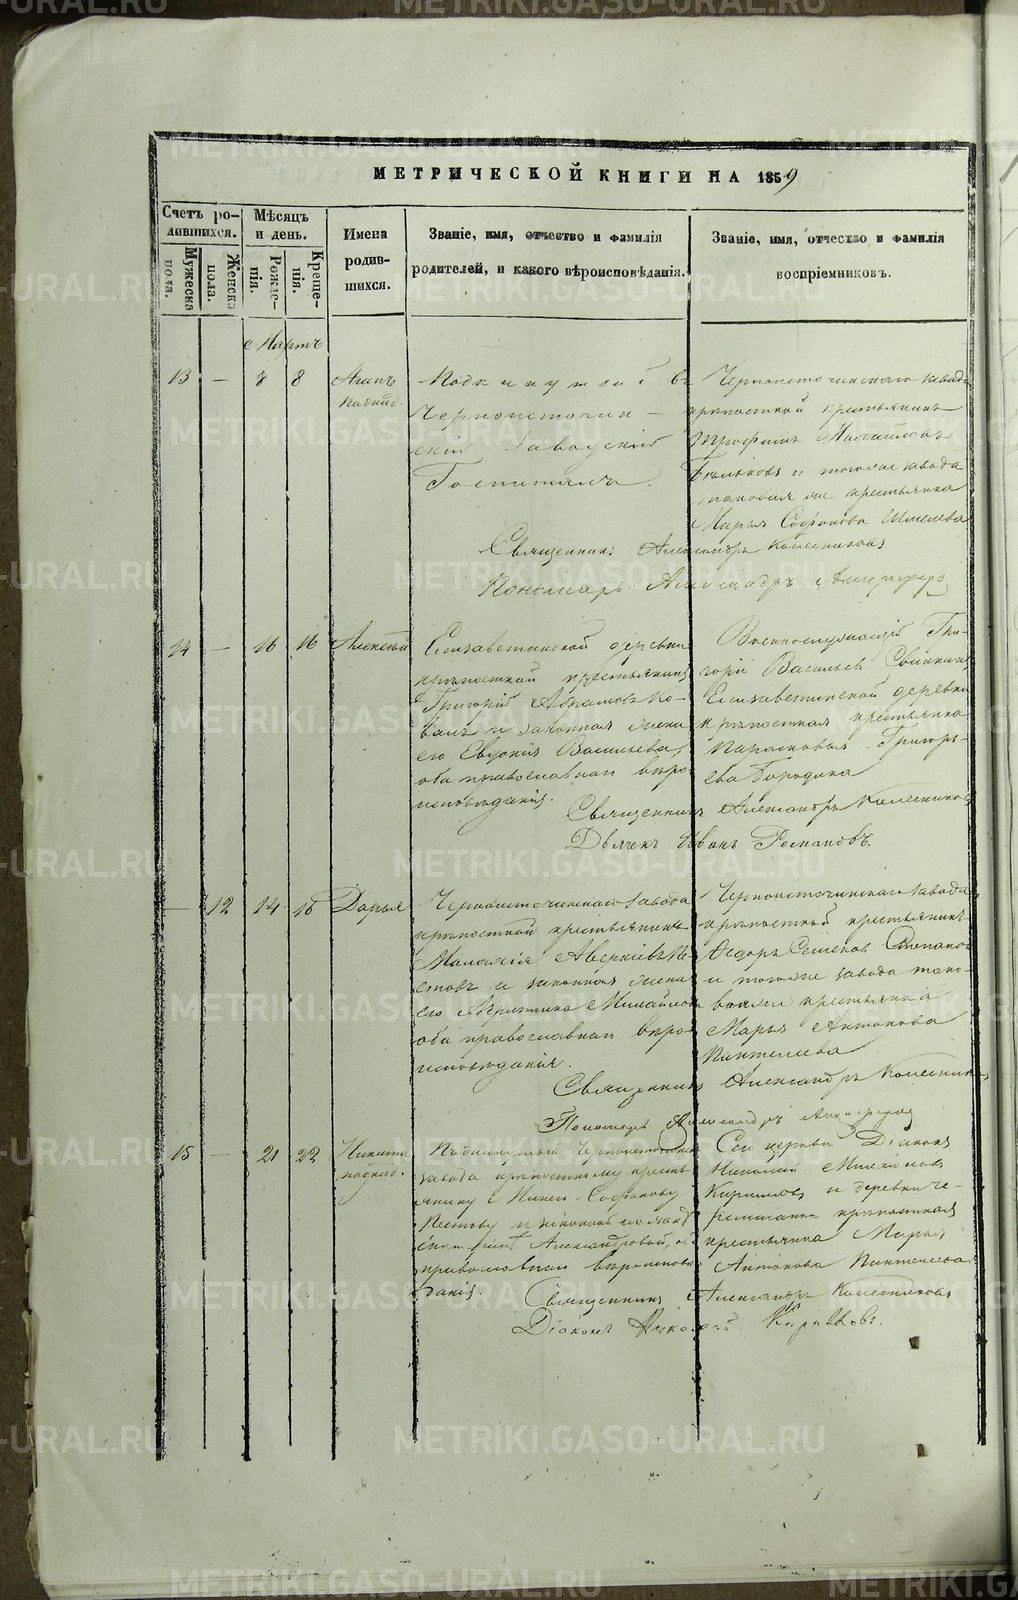 МЕТРИЧЕСКОЙ КНИГИ НА 1859
Счетъ ро-
дившихся.
Мужеска
пола.
Женска
пола.
Мѣсяцъ
и день.
Рожде-
нія.
Креще-
нія.
Имена
родив-
шихся.
Званіе, имя, отчество и фамилія
родителей, и какого вѣроисповѣданія.
Званіе, имя, отчество и фамилія
воспріемниковъ.
Мартъ
13 — 8 8
Агапъ
Подкинутый въ
Черноисточин-
скій Заводскій
Госпиталь.
Черноисточинскаго завода
крѣпостной крестьянинъ
Трофимъ
и тогоже завода
таковая же крестьянка
Марья Софонова Шмелева
Священникъ Александръ Колесниковъ
Пономарь Александръ
14 — 16 16
Алексѣй
Елизаветинской деревни
крѣпостной крестьянинъ
Григорій
и законная жена
его Евдокія Васильева,
оба православнаго вѣро-
исповѣданія.
Военнослужащій Гри-
горій Васильевъ
Елизаветинской деревни
крѣпостная крестьянка
Парасковья Григорь-
ева Бородина
Священникъ Александръ Колесниковъ
Дьячекъ Иванъ Романовъ.
— 12 14 15
Дарья
Черноисточинскаго завода
крѣпостной крестьянинъ
и законная жена
его Михайлова
оба православнаго вѣро-
исповѣданія.
Черноисточинскаго завода
крѣпостной крестьянинъ
Ѳедоръ Семеновъ
и тогоже завода тако-
ваяже крестьянка
Марья Антонова
Пантелеева
Священникъ Александръ Колесниковъ
Пономарь Александръ
15 — 21 22
Никита
подкид.
завода крѣпостному кресть-
янину Софонову
Александровой,
православнаго вѣроисповѣ-
данія.
Сей церкви Діаконъ
Николай
Кирилловъ и деревни Че-
крѣпостная
крестьянка Марья
Антонова Пантелеева
Священникъ Александръ Колесниковъ
Діаконъ Николай Кирилловъ.
METRIKI.GASO-URAL.RU